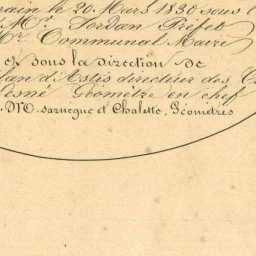 rain le 20 Mars 1830 sous l
Mr. Jordan Préfet
Mr Communal Maire
et sous la direction de
lan d'Astis directeur des C
esné Géomètre en chef
M. sarnegue et Chalette, Géomètres